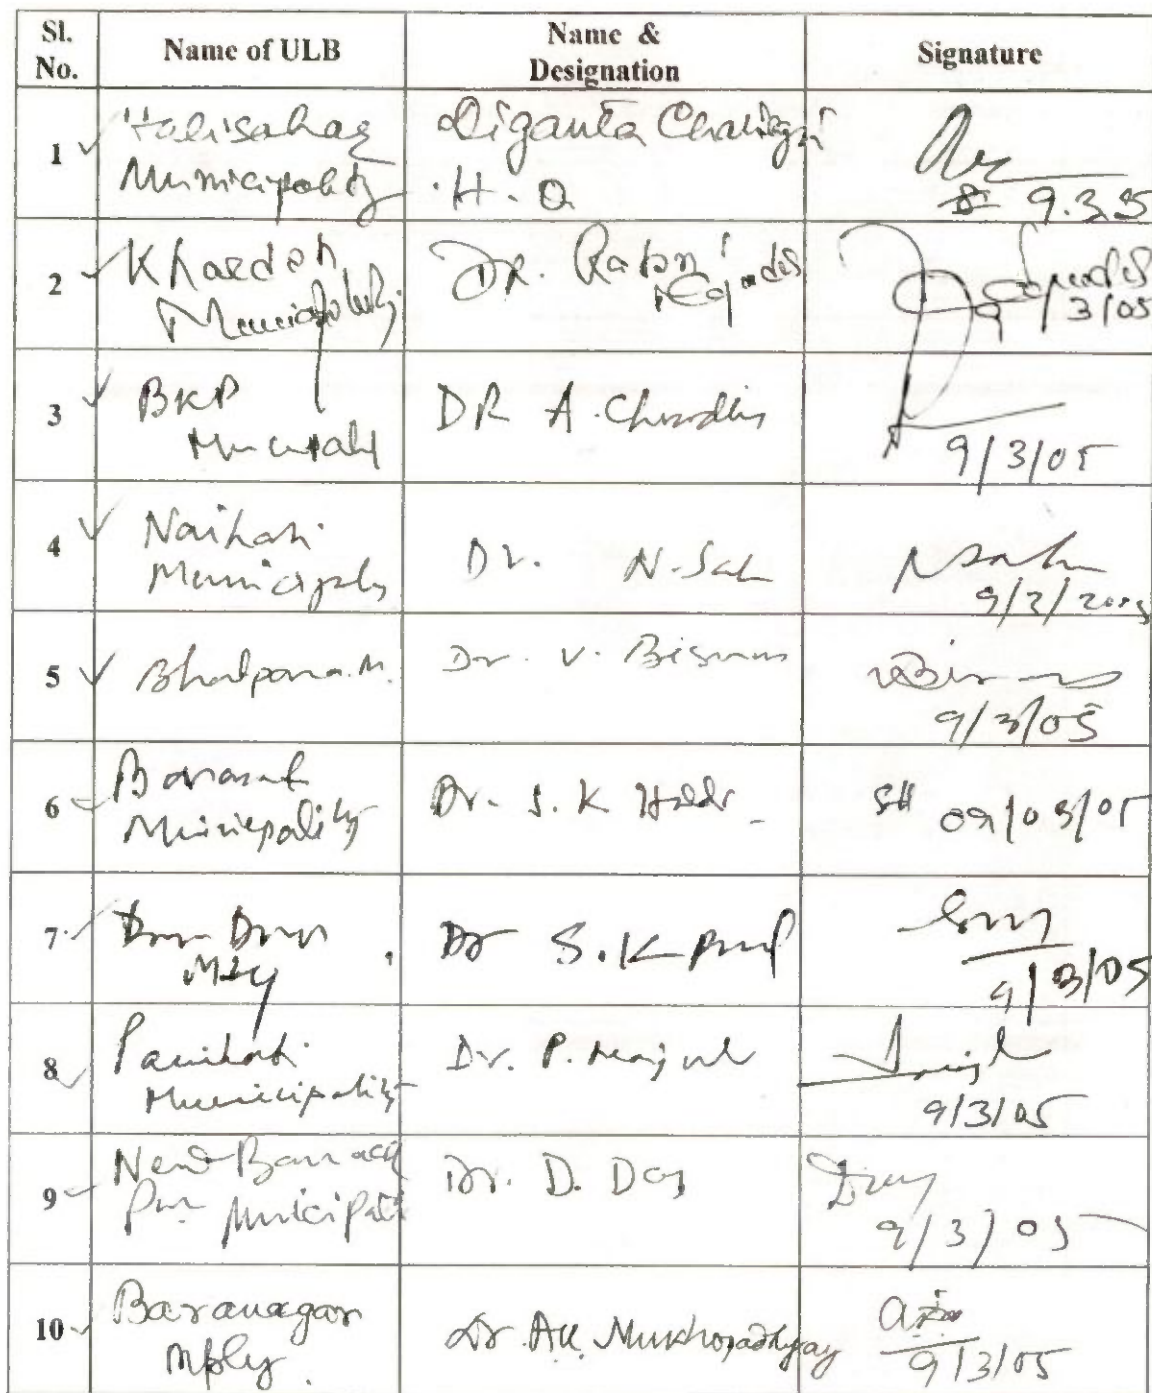 Sl. No. Name of ULB Name & Designation Signature
1 Halisahar Municipality Diganta H.O 9.3.5
2 Khardah Municipality Dr. Ratan 9/3/05
3 BKP DR A. 9/3/05
4 Naihati Municipality Dr. N. Saha NSaha
5 Bhatpara M. Dr. V. Biswas 9/3/05
6 Barasat Municipality Dr. S. K Halder SH 09/03/05
7 Dum Dum Mty Dr S.K 9/3/05
8 Panihati Municipality Dr. P. 9/3/05
9 New Barrack Pur Municipali Dr. D. Das 9/3/05
10 Baranagar Mply. Dr A.K. Mukhopadhyay 9/3/05